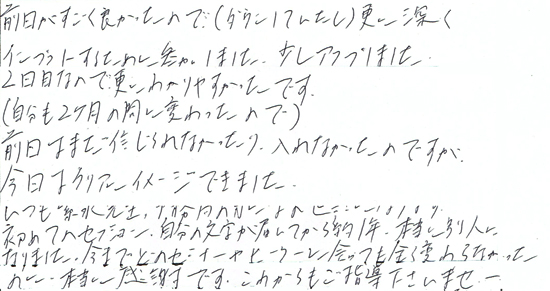 前回がすごく良かったので(ダウンしていたし)更に深く
インプットするために参加しました。少しアップしました。
2日目なので更にわかりやすかったです。
(自分も2ヶ月の間に変わったので)
前回はまだ信じられなかったり、入れなかったのですが、
今日はクリアにイメージできました。
いつも
初めてのセッション、自分の文字が 約1年、本当に別人に
なりました。今までどのセミナーやヒーラーに会っても全く変わらなかった
のに…本当に感謝です。これからもご指導下さいませ